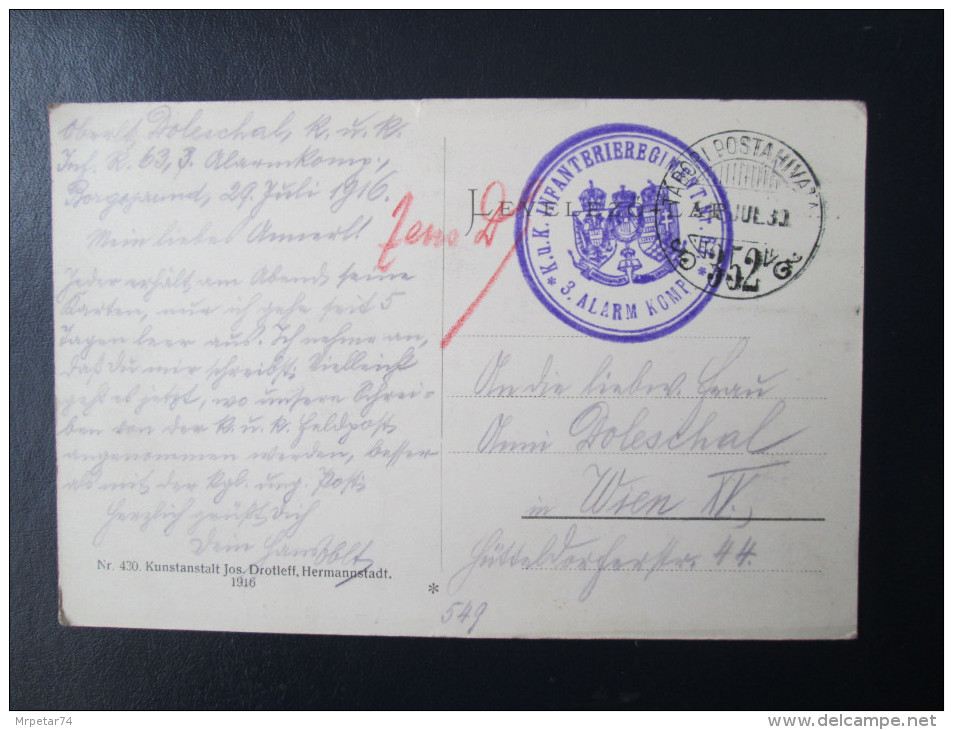 Oberlt. Doleschal, k. u. k.
Inf. R. 63, 3. Alarmkomp.,
Borgoprund, 29. Juli 1916.
Mein liebes Annerl!
Jeder erhält am Abend seine
Karten, nur ich gehe seit 5
Tagen leer aus. Ich nehme an,
daß du mir schreibst; Vielleicht
geht es jetzt, wo unsere Schrei-
ben von der k. u. k. Feldpost
angenommen werden, besser
als mit der kgl. ung. Post;
Herzlich grüßt Dich
Dein
Nr. 430. Kunstanstalt Jos. Drotleff, Hermannstadt.
1916
*
LEVELEZŐLAP
* K. u. K. INFANTERIEREGIMENT *
3. ALARM KOMP.
TÁBORI POSTAHIVATAL
JUL. 30
352
An die liebw. Frau
Anni Doleschal
in Wien XV.,
Hütteldorferstr. 44.
549
Mrpetar74
www.delcampe.net